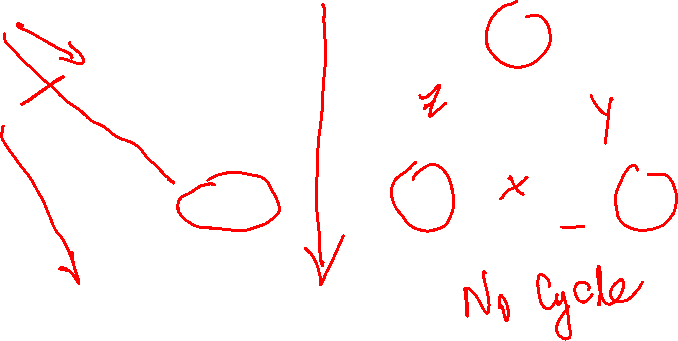 z
y
x
No Cycle